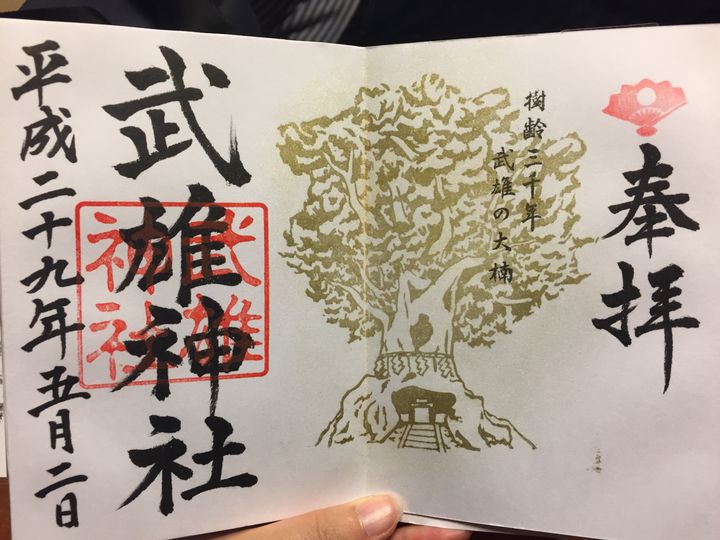 奉拝
樹齢三千年
武雄の大楠
武雄神社
武雄
神社
平成二十九年五月二日